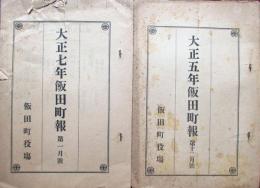 大正五年飯田町報 第十二月號
飯田町役場
大正七年飯田町報 第一月號
飯田町役場